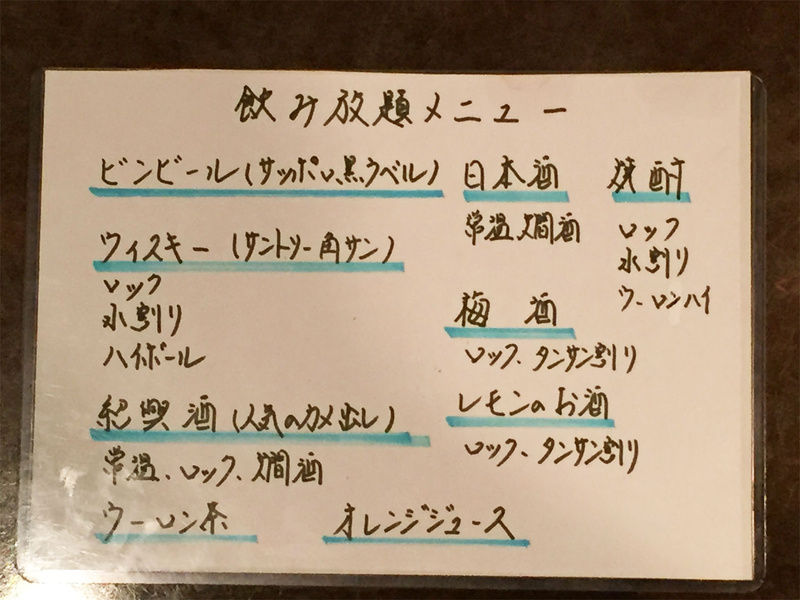 飲み放題メニュー
ビンビール(サッポロ、黒ラベル)
ウィスキー (サントリー角サン)
ロック
水割り
ハイボール
紹興酒(人気のカメ出し)
常温、ロック、燗酒
ウーロン茶
オレンジジュース
日本酒
常温、燗酒
梅 酒
ロック、タンサン割り
レモンのお酒
ロック、タンサン割り
焼酎
ロック
水割り
ウーロンハイ